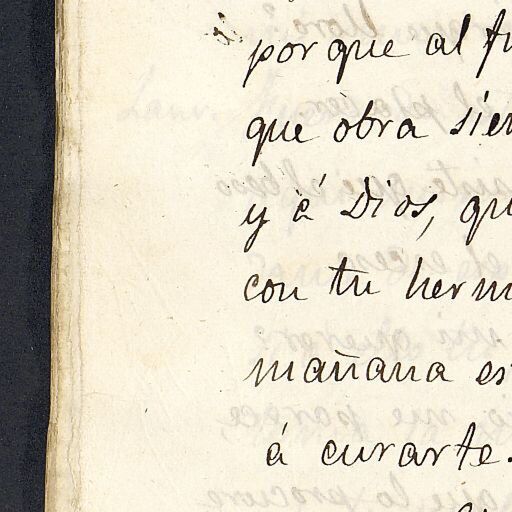 porque al fi
que obra sien
y á Dios, qu
con tu herm
mañana es
á curarte.